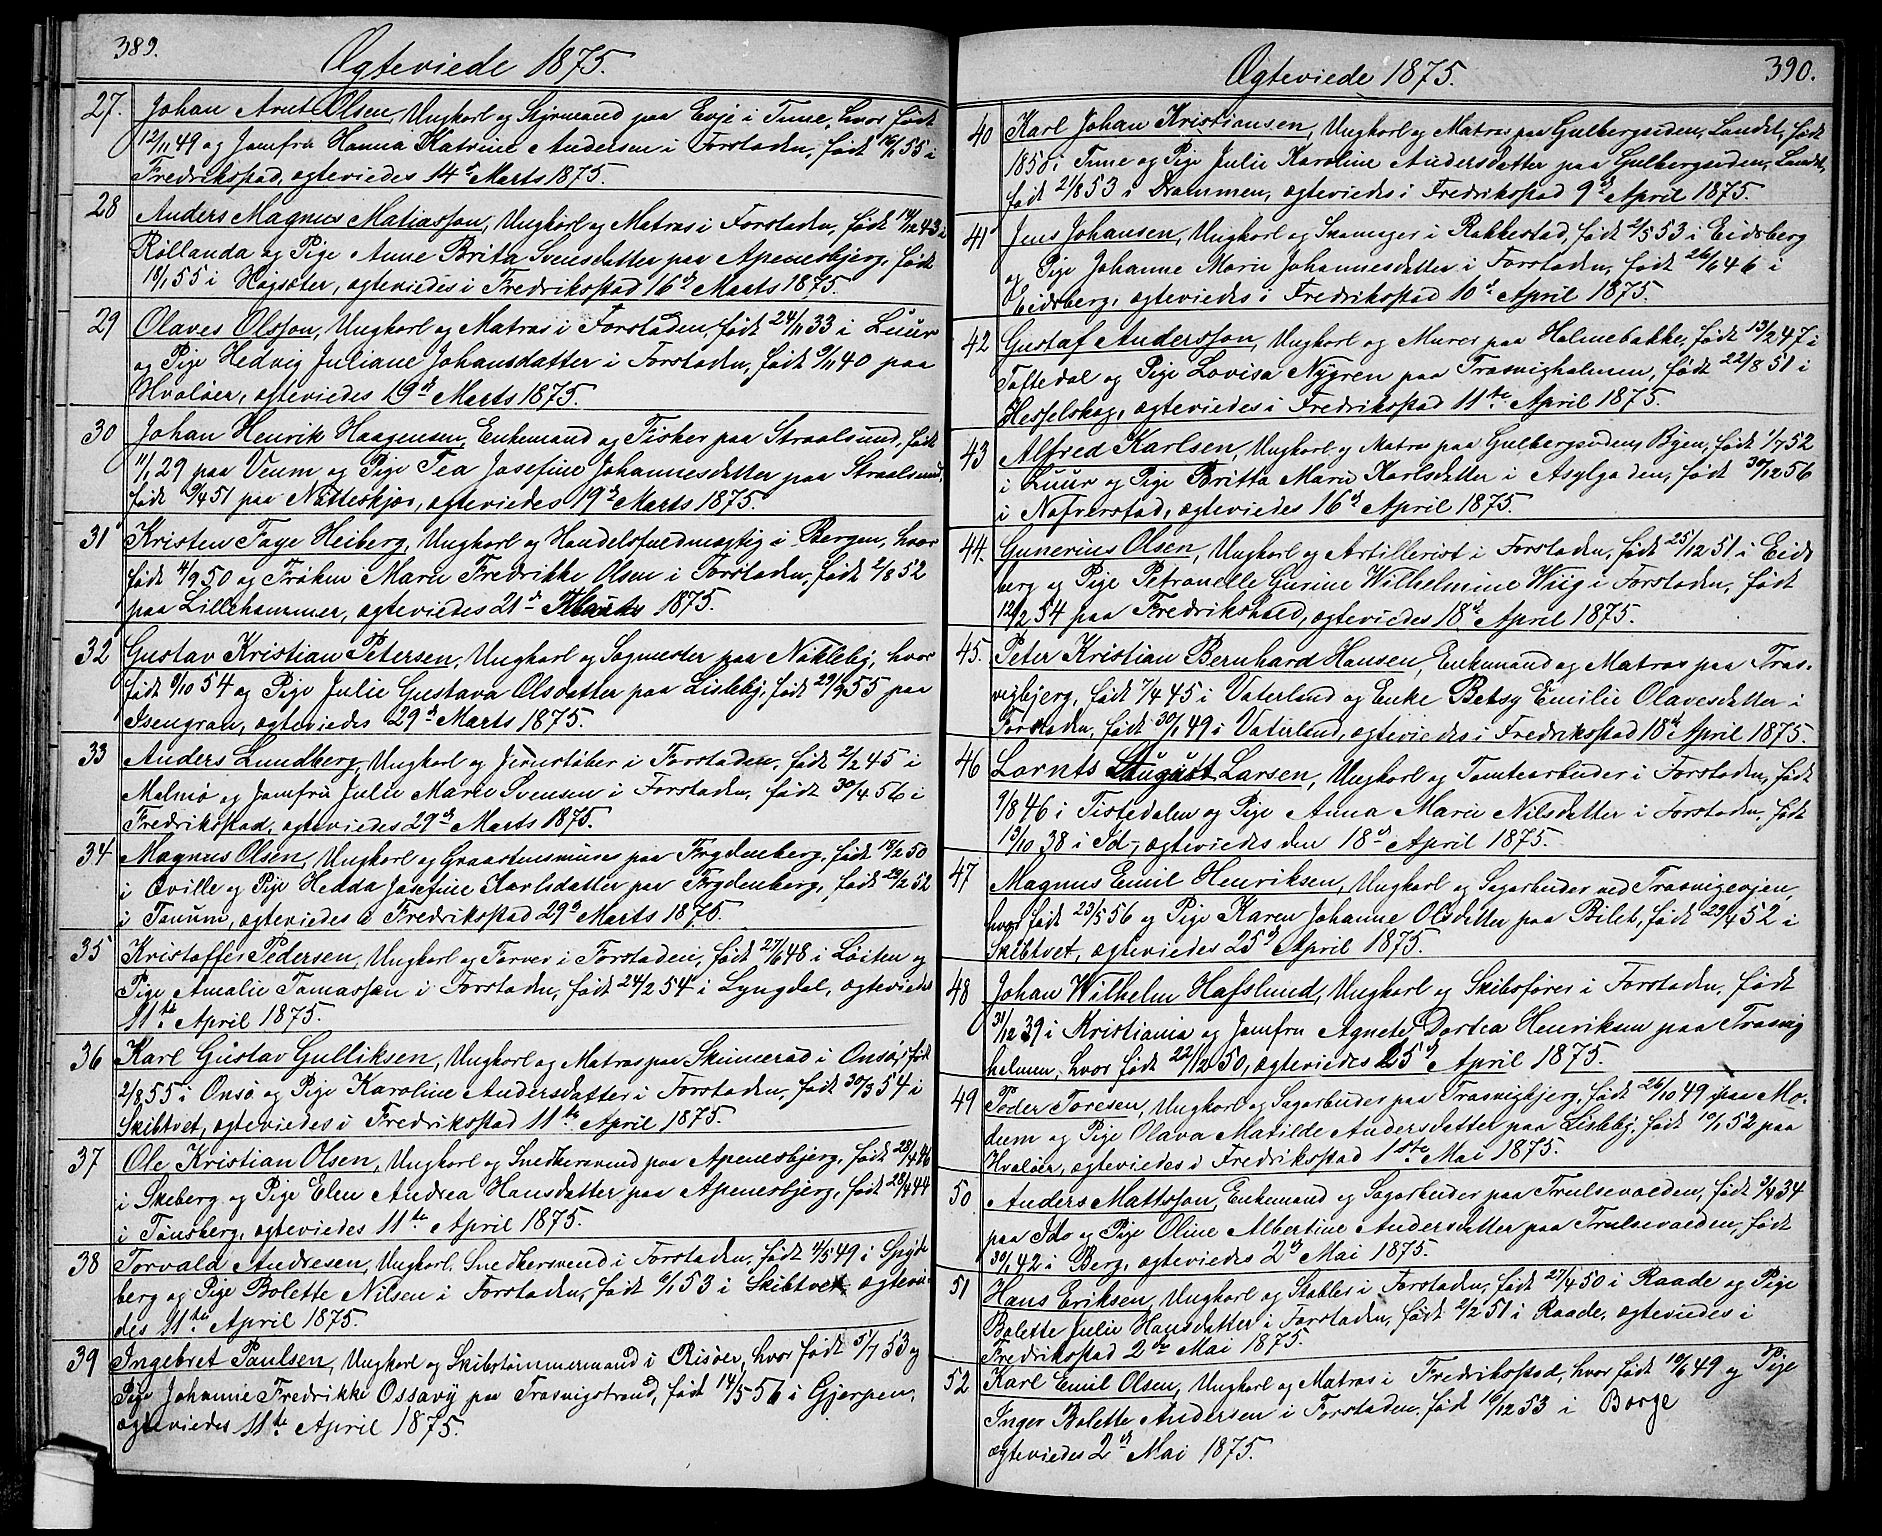 389.
Ægteviede 1875.
27. Johan Arnt Olsen, Ungkarl og Styrmand paa Evje i Tune, hvor født
12/11 49 og Jomfru Hanna Katrine Andersen i Forstaden, født 55 i
Fredrikstad, ægteviedes 14de Marts 1875.
28 Anders Magnus Matiasson, Ungkarl og Matros i Forstaden, født 14/12 43 i
Röllanda og Pige Anne Brita Svensdatter paa Apenesbjerg, født
18/1 55 i Høgsæter, ægteviedes i Fredrikstad 16de Marts 1875.
29 Olaves Olsson, Ungkarl og Matros i Forstaden, født 24/11 33 i Luur
og Pige Hedvig Juliane Johansdatter i Forstaden, født 9/11 40 paa
Hvaløer, ægteviedes 19de Marts 1875.
30 Johan Henrik Haagensen, Enkemand og Fisker paa Straalsund, født
11/1 29 paa Veum og Pige Tea Josefine Johannesdatter paa Straalsund,
født 9/4 51 paa Natteskjær, ægteviedes 19de Marts 1875.
31 Kristen Faye Heiberg, Ungkarl og Handelsfuldmægtig i Bergen, hvor
født 4/9 50 og Frøken Marie Fredrikke Olsen i Forstaden, født 2/8 52
paa Lillehammer, ægteviedes 21de Marts 1875.
32 Gustav Kristian Petersen, Ungkarl og Sagmester paa Nökleby, hvor
født 9/10 54 og Pige Julie Gustava Olsdatter paa Lisleby, født 29/9 55 paa
Isengran, ægteviedes 29de Marts 1875.
33 Anders Lundberg, Ungkarl og Jernstøber i Forstaden, født 2/2 45 i
Malmö og Jomfru Julie Marie Svensen i Forstaden, født 30/4 56 i
Fredrikstad, ægteviedes 29de Marts 1875.
34 Magnus Olsen, Ungkarl og Graastensmurer paa Frydenberg, født 18/2 50
i Qville og Pige Hedda Josefine Karlsdatter paa Frydenberg, født 29/2 52
i Tanum, ægteviedes i Fredrikstad 29de Marts 1875.
35 Kristoffer Pedersen, Ungkarl og Farver i Forstaden, født 27/6 48 i Løiten og
Pige Amalie Tomassen i Forstaden, født 24/2 54 i Lyngdal, ægteviedes
11te April 1875.
36 Karl Gustav Gulliksen, Ungkarl og Matros paa Skinnerød i Onsø, født
2/8 55 i Onsø og Pige Karoline Andersdatter i Forstaden, født 30/3 54 i
Skibtvet, ægteviedes i Fredrikstad 11te April 1875.
37 Ole Kristian Olsen, Ungkarl og Snedkersvend paa Apenesbjerg, født 28/4 46
i Skeberg og Pige Elen Andrea Hansdatter paa Apenesbjerg, født 28/4 44
i Tønsberg, ægteviedes 11te April 1875.
38 Torvald Andresen, Ungkarl, Snedkersvend i Forstaden, født 4/5 49 i Spyde
berg og Pige Bolette Nilsen i Forstaden, født 6/1 53 i Skibtvet ægtevie-
des 11te April 1875.
39 Ingebret Paulsen, Ungkarl og Skibstømmermand i Risøer, hvor født 5/7 53 og
Pige Johanne Fredrikke Ossavy paa Trosvigstrand, født 14/5 56 i Gjerpen,
ægteviedes 11te April 1875.
390.
Ægteviede 1875.
40 Karl Johan Kristiansen, Ungkarl og Matros paa Gulbergsiden, Landet, født
1850 i Tune og Pige Julie Karoline Andersdatter paa Gulbergsiden, Landet,
født 21/8 53 i Drammen, ægteviedes i Fredrikstad 9de April 1875.
41 Jens Johansen, Ungkarl og Svanger i Rakkestad, født 2/5 53 i Eidsberg
og Pige Johanne Marie Johannesdatter i Forstaden, født 26/6 46 i
Eidsberg, ægteviedes i Fredrikstad 10de April 1875.
42 Gustaf Andersson, Ungkarl og Murer paa Holmebakke, født 13/2 47 i
Toftedal og Pige Lovisa Nygren paa Trosvigholmen, født 22/8 51 i
Hesselskog, ægteviedes i Fredrikstad 11te April 1875.
43 Alfred Karlsen, Ungkarl og Matros paa Gulbergsiden, Byen, født 1/7 52
i Luur og Pige Britta Marie Karlsdatter i Asylgaden, født 30/12 56
i Nafverstad, ægteviedes 16de April 1875.
44. Gunerius Olsen, Ungkarl og Artillerist i Forstaden, født 25/12 51 i Eids
berg og Pige Petronelle Gurine Wilhelmine Wiig i Forstaden, født
12/2 54 paa Fredrikshald, ægteviedes 18de April 1875.
45. Peter Kristian Bernhard Hansen, Enkemand og Matros paa Tros-
vigbjerg, født 7/4 45 i Vaterland og Enke Betsy Emilie Olavesdatter i
Forstaden, født 30/1 49 i Vaterland, ægteviedes i Fredrikstad 18de April 1875.
46 Lornts August Larsen, Ungkarl og Tomtearbeider i Forstaden, født
9/8 46 i Tistedalen og Pige Anna Marie Nilsdatter i Forstaden, født
13/10 38 i Id, ægteviedes den 18de April 1875.
47 Magnus Emil Henriksen, Ungkarl og Sagarbeider ved Trosvigveien,
hvor født 23/5 56 og Pige Karen Johanne Olsdatter paa Bilet, født 29/4 52 i
Skibtvet, ægteviedes 25de April 1875.
48 Johan Wilhelm Hafslund, Ungkarl og Skibsfører i Forstaden, født
31/12 39 i Kristiania og Jomfru Agnete Dortea Henriksen paa Trosvig
holmen, hvor født 22/12 50, ægteviedes 25de April 1875.
49 Peder Toresen, Ungkarl og Sagarbeider paa Trosvigbjerg, født 26/10 49 paa Mo-
dum og Pige Olava Matilde Andersdatter paa Lisleby, født 19/1 52 paa
Hvaløer, ægteviedes i Fredrikstad 1ste Mai 1875.
50. Anders Mattsson, Enkemand og Sagarbeider paa Trulsevolden, født 3/9 34
paa Ido og Pige Oline Albertine Andersdatter paa Trulsevolden, født
30/1 42 i Berg, ægteviedes 2de Mai 1875.
51 Hans Eriksen, Ungkarl og Stabler i Forstaden, født 27/4 50 i Raade og Pige
Bolette Julie Hansdatter i Forstaden, født 2/2 51 i Raade, ægteviedes i
Fredrikstad 2de Mai 1875.
52 Karl Emil Olsen, Ungkarl og Matros i Fredrikstad, hvor født 10/6 49 og Pige
Inger Bolette Andersen i Forstaden, født 16/12 53 i Borge
ægteviedes 2de Mai 1875.